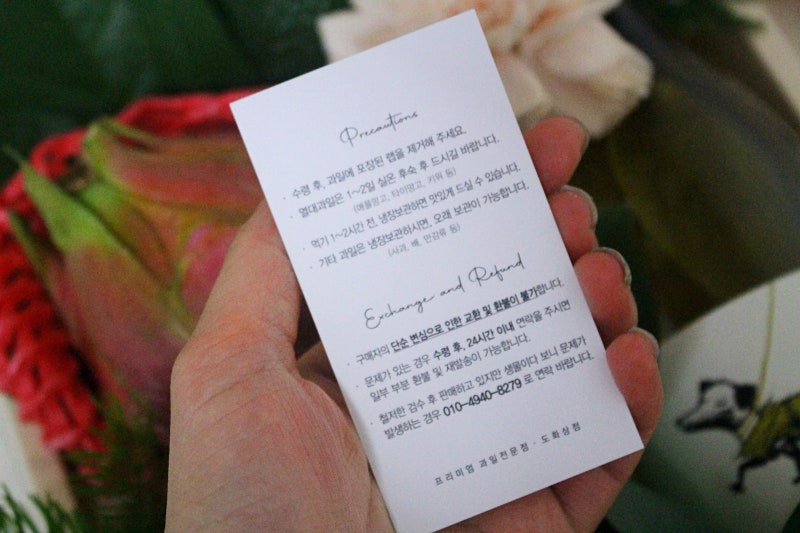 Precautions
· 수령 후, 과일에 포장된 랩을 제거해 주세요.
· 열대과일은 1~2일 실온 후숙 후 드시길 바랍니다.
(애플망고, 타이망고, 키위 등)
· 먹기 1~2시간 전, 냉장보관하면 맛있게 드실 수 있습니다.
· 기타 과일은 냉장보관하시면, 오래 보관이 가능합니다.
(사과, 배, 만감류 등)
Exchange and Refund
· 구매자의 단순 변심으로 인한 교환 및 환불이 불가합니다.
· 문제가 있는 경우 수령 후, 24시간 이내 연락을 주시면
일부 부분 환불 및 재발송이 가능합니다.
· 철저한 검수 후 판매하고 있지만 생물이다 보니 문제가
발생하는 경우 010-4940-8279 로 연락 바랍니다.
프리미엄 과일전문점 · 도화상점